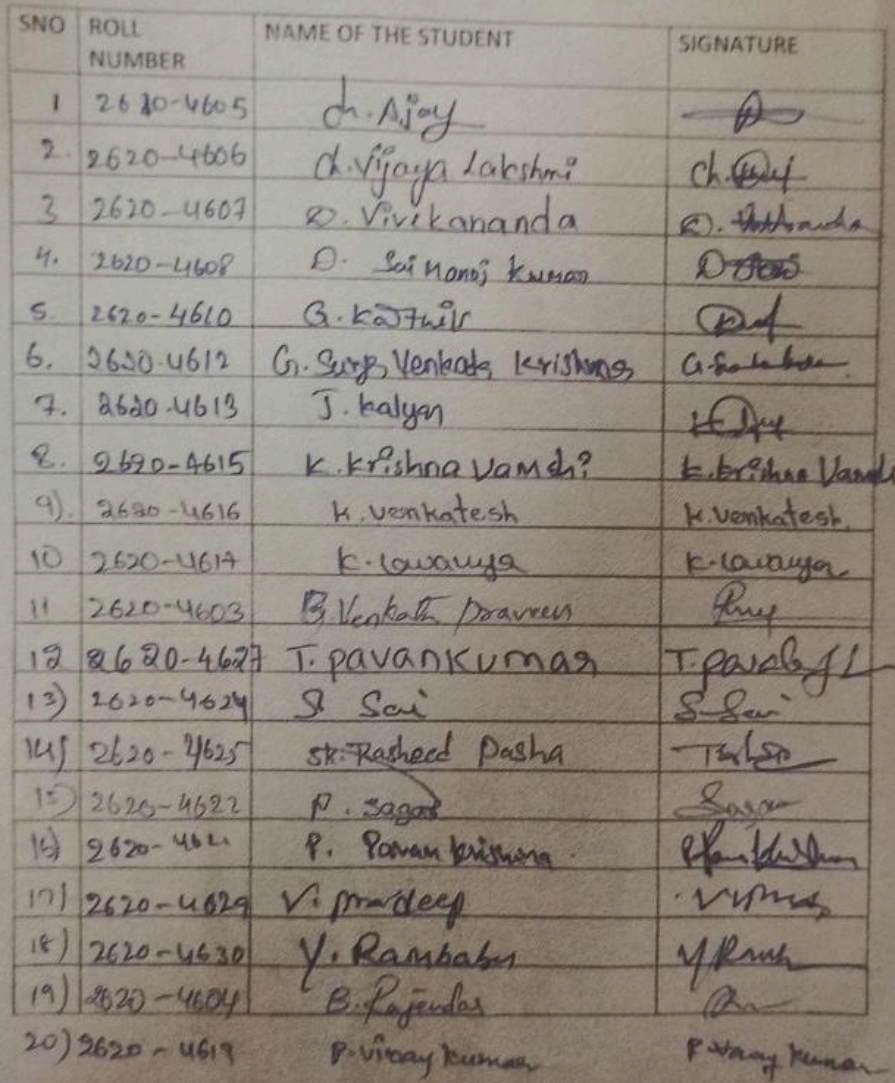 SNO ROLL NUMBER NAME OF THE STUDENT SIGNATURE
1 2620-4605 Ch. Ajay
2. 2620-4606 Ch. Vijaya Lakshmi Ch.
3 2620-4607 D. Vivikananda D.
4. 2620-4608 D. Sai Manoj Kumar
5. 2620-4610 G. Karthik
6. 2620-4612 G. Surya Venkata Krishna G.
7. 2620-4613 J. Kalyan
8. 2620-4615 K. Krishna Vamshi K. Krishna Vamshi
9). 2620-4616 K. Venkatesh K. Venkatesh
10 2620-4617 K. Lavanya K. Lavanya
11 2620-4603 B. Venkata Praveen
12 2620-4627 T. pavankumar T.
13) 2620-4624 S Sai S Sai
14) 2620-4625 SK. Rasheed Pasha
15) 2620-4622 P. Sagar Sagar
16) 2620-4621 P. Pavan krishna
17) 2620-4629 V. pradeep
18) 2620-4630 Y. Rambabu
19) 2620-4604 B. Rajendar
20) 2620-4619 P. Vinay Kumar P. Vinay Kumar